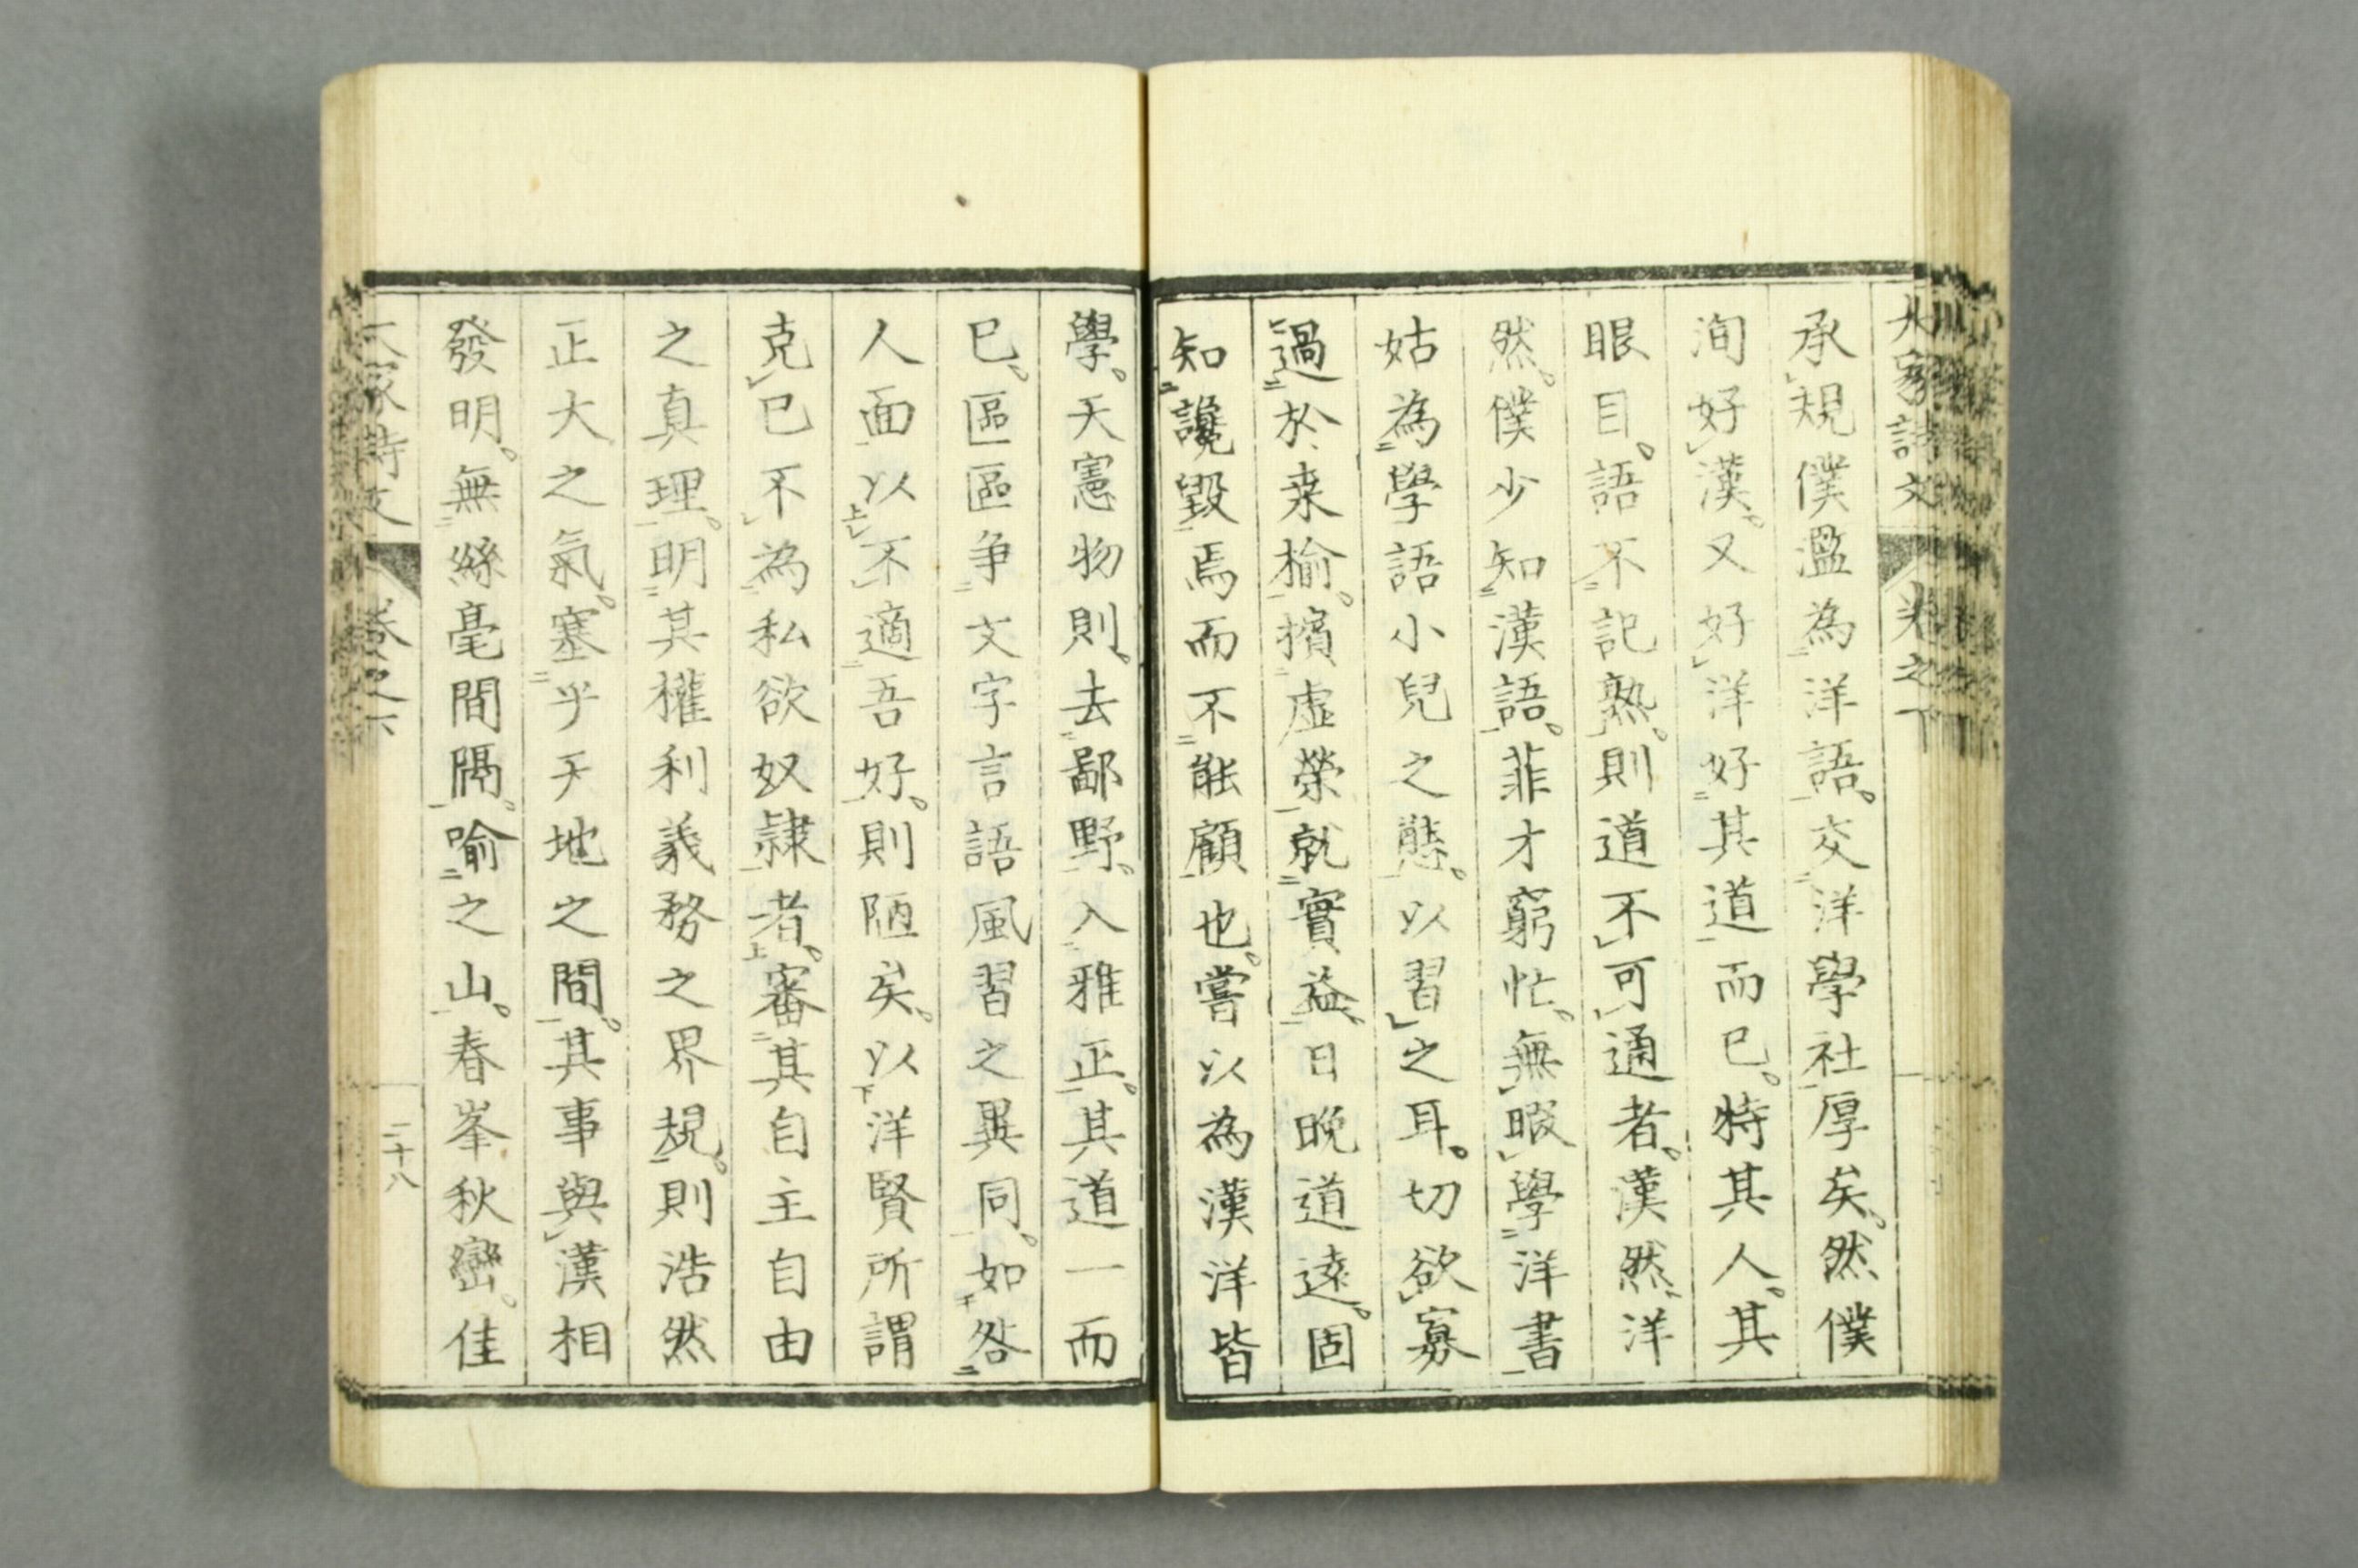 大家詩文 卷之下
承規僕濫為洋語。交洋學社厚矣。然僕
洵好漢。又好洋。好其道而已。特其人。其
眼目。語不記熟。則道不可通者。漢然。洋
然。僕少知漢語。菲才窮忙。無暇學洋書
姑為學語小兒之態。以習之耳。切欲寡
過於桒楡。擯虛榮就實益。日晚道遠。固
知讒毀焉而不能顧也。嘗以為漢洋皆
學。天憲物則。去鄙野。入雅正。其道一而
已。區區争文字言語風習之異同。如咎
人面以不適吾好。則陋矣。以洋賢所謂
克己不為私欲奴隷者。審其自主自由
之真理。明其權利義務之界規。則浩然
正大之氣。塞乎天地之間。其事與漢相
發明。無絲毫間隔。喻之山。春峯秋巒。佳
大家詩文 卷之下 二十八